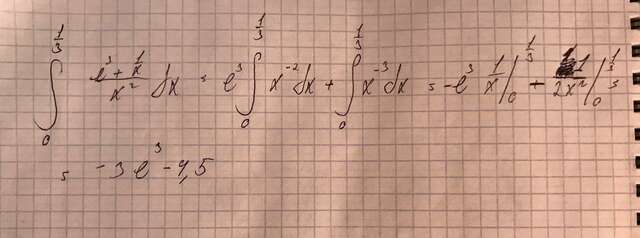 ∫₀^{1/3} (e³ + 1/x)/x² dx = e³ ∫₀^{1/3} x⁻² dx + ∫₀^{1/3} x⁻³ dx = -e³ 1/x |₀^{1/3} + 1/(2x²) |₀^{1/3}
= -3e³ - 4,5